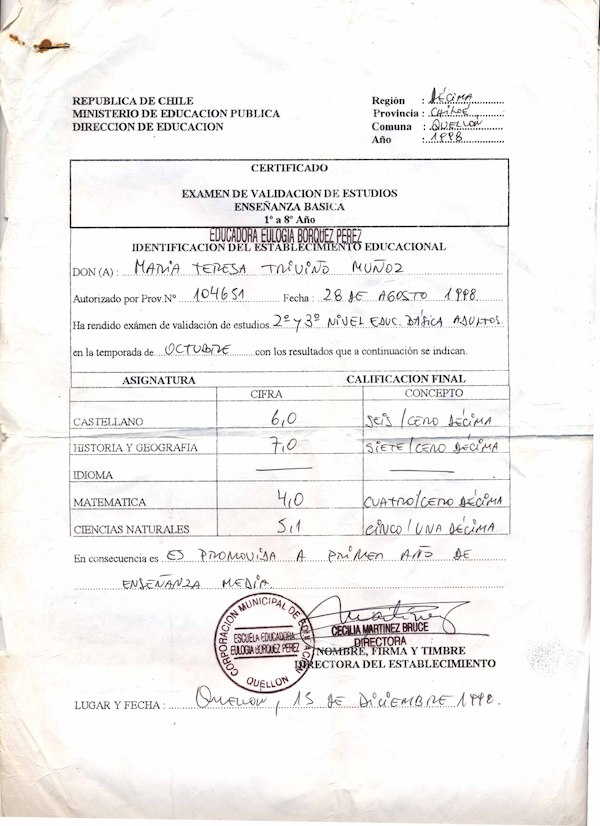 REPUBLICA DE CHILE
MINISTERIO DE EDUCACION PUBLICA
DIRECCION DE EDUCACION
Región : DÉCIMA
Provincia : CHILOÉ
Comuna : QUELLON
Año : 1998
CERTIFICADO
EXAMEN DE VALIDACION DE ESTUDIOS
ENSEÑANZA BASICA
1º a 8º Año
EDUCADORA EULOGIA BORQUEZ PEREZ
IDENTIFICACION DEL ESTABLECIMIENTO EDUCACIONAL
DON (A) : MARIA TERESA TRIVIÑO MUÑOZ
Autorizado por Prov.Nº 104651 Fecha : 28 DE AGOSTO 1998.
Ha rendido exámen de validación de estudios 2º y 3º NIVEL EDUC. BÁSICA ADULTOS.
en la temporada de OCTUBRE con los resultados que a continuación se indican.
ASIGNATURA CALIFICACION FINAL
CIFRA CONCEPTO
CASTELLANO 6,0 SEIS/CERO DÉCIMA
HISTORIA Y GEOGRAFIA 7,0 SIETE/CERO DÉCIMA
IDIOMA
MATEMATICA 4,0 CUATRO/CERO DÉCIMA
CIENCIAS NATURALES 5,1 CINCO/UNA DÉCIMA
En consecuencia es ES PROMOVIDA A PRIMER AÑO DE
ENSEÑANZA MEDIA.
CORPORACION MUNICIPAL DE EDUCACION
ESCUELA EDUCADORA
EULOGIA BORQUEZ PEREZ
QUELLON
Martínez
CECILIA MARTINEZ BRUCE
DIRECTORA
NOMBRE, FIRMA Y TIMBRE
DIRECTORA DEL ESTABLECIMIENTO
LUGAR Y FECHA : QUELLON, 15 DE DICIEMBRE 1998.